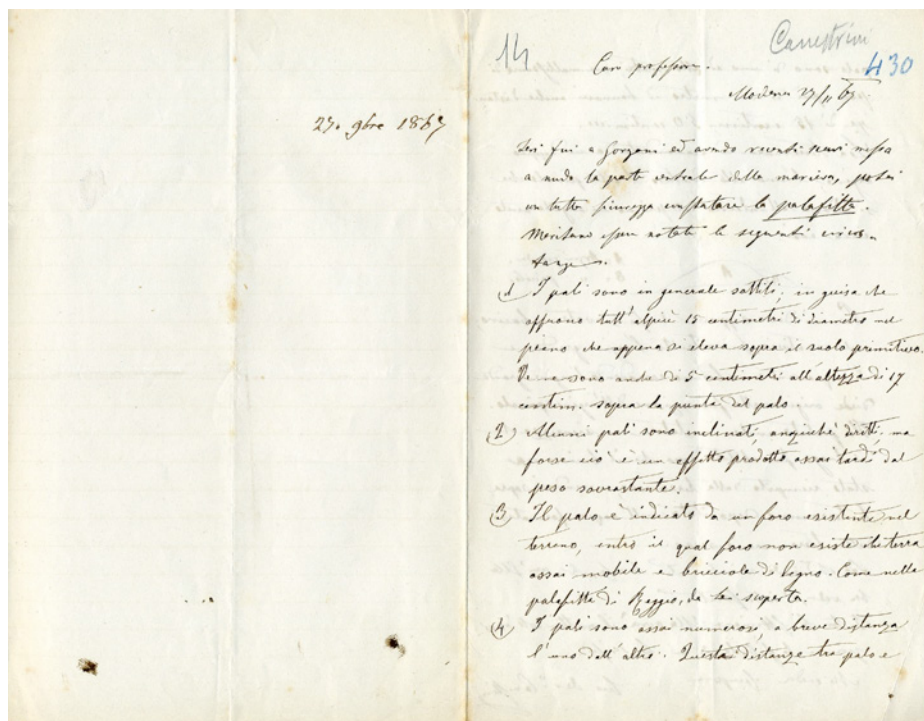 27. 9bre 1867
14
Canestrini
430
Caro professore.
Modena 27/11 67.
Ieri fui a Gorzano ed avendo recenti scavi messa
a nudo la parte centrale della mariera, potei
con tutta sicurezza constatare la palafitta.
Meritano esser notate le seguenti circos-
tanze.
1) I pali sono in generale sottili, in guisa che
offrono tutt'al più 15 centimetri di diametro nel
piano che appena si eleva sopra il suolo primitivo.
Ve ne sono anche di 5 centimetri all'altezza di 17
centim. sopra la punta del palo.
2) Alcuni pali sono inclinati, anzichè diritti, ma
forse ciò è un effetto prodotto assai tardi dal
peso sovrastante.
3) Il palo è indicato da un foro esistente nel
terreno, entro il qual foro non esiste che terra
assai mobile e bricciole di legno. Come nella
palafitte di Reggio, da Lei scoperta.
4) I pali sono assai numerosi, a breve distanza
l'uno dall'altro. Questa distanza tra palo e